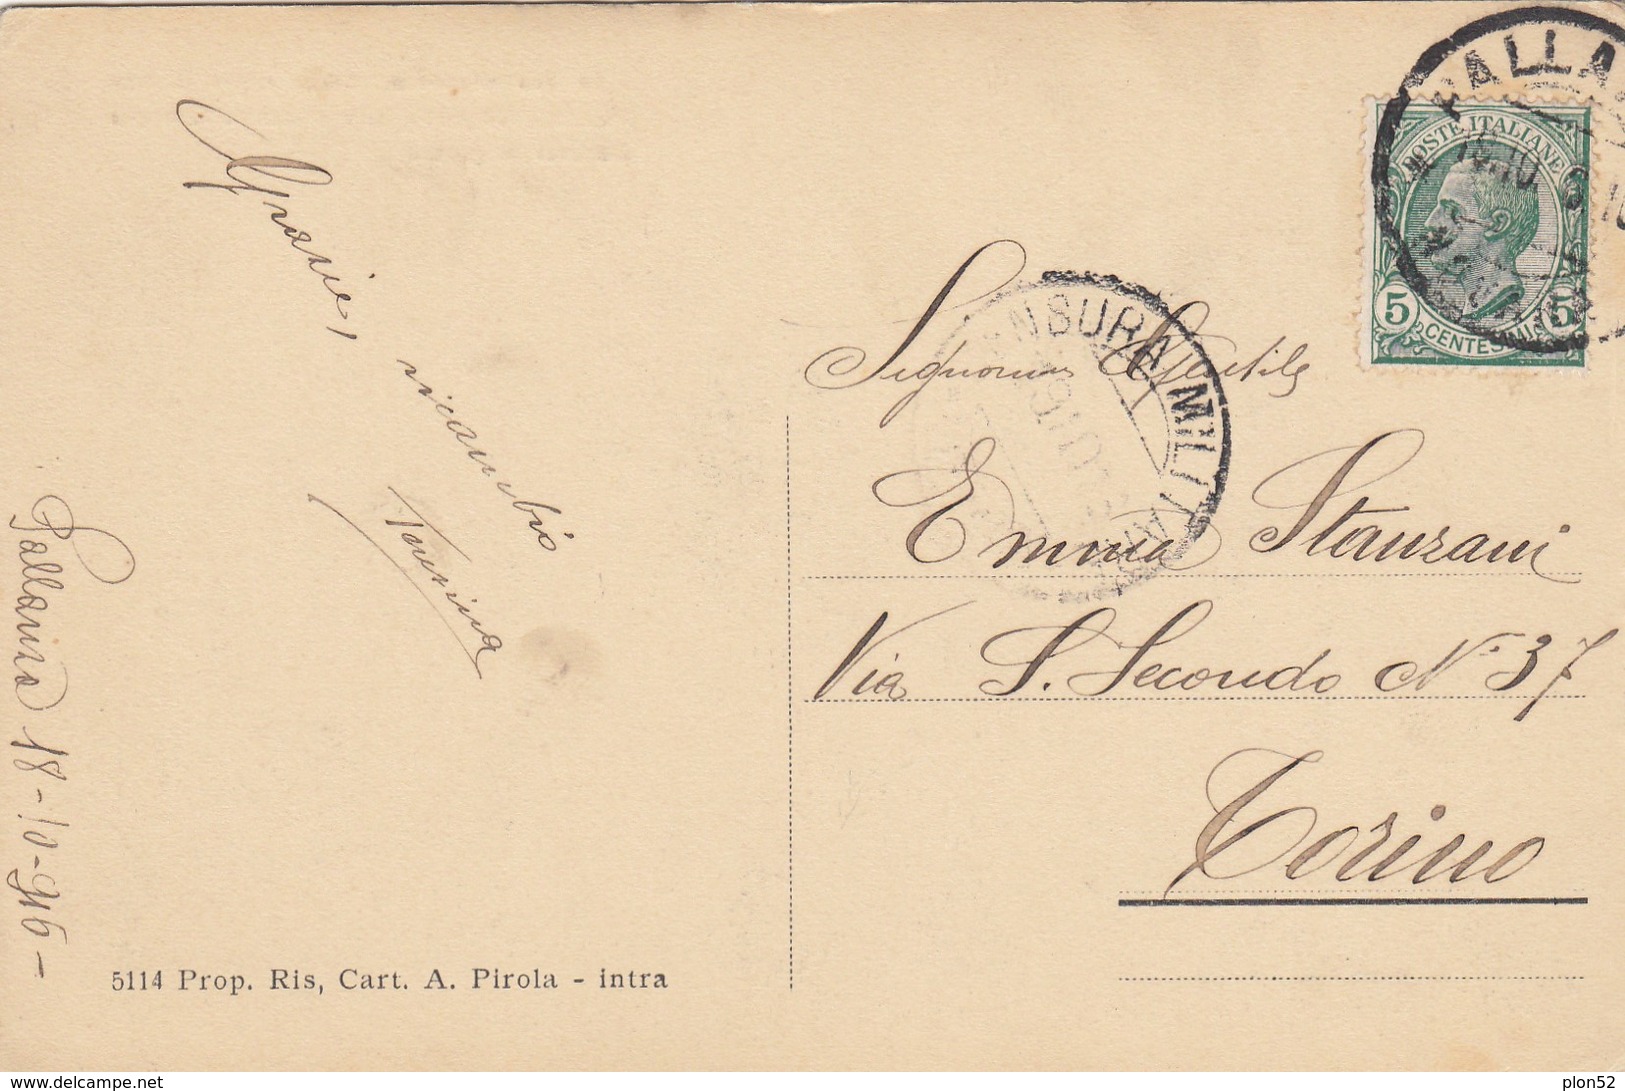 Grazie,
ricambio
Pallanza 18-10-916-
5114 Prop. Ris, Cart. A. Pirola - intra
PALLA
POSTE ITALIANE
5 CENTESIMI 5
CENSURA MILITARE
Signorina Gentile
Emma Stanzani
Via S. Secondo N. 37
Torino
www.delcampe.net
plon52